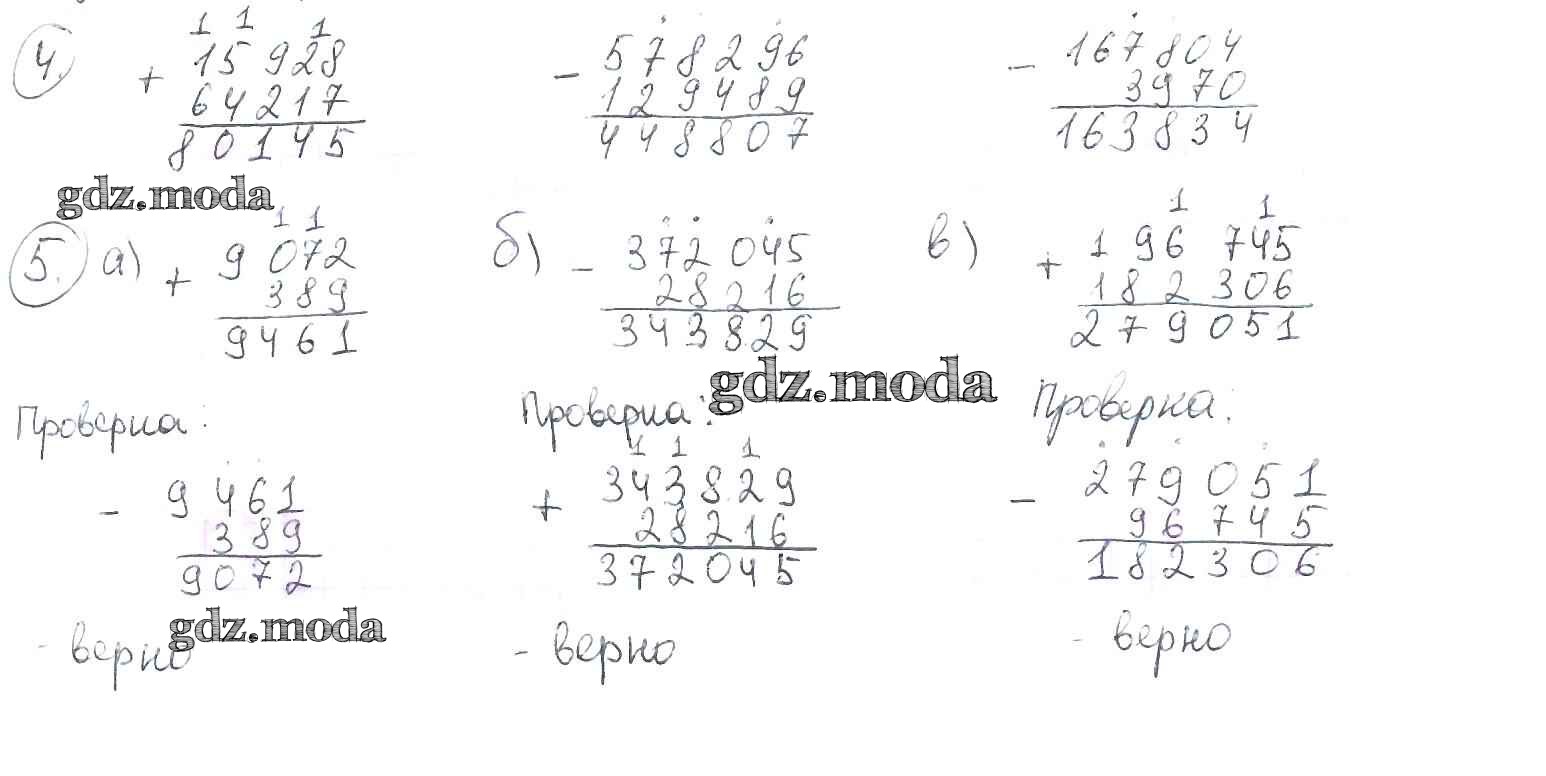 4.
1 1 1
+ 15 928
64217
80145
- 578296
129489
448807
- 167804
3970
163834
gdz.moda
5. а)
1 1
+ 9 072
389
9461
б)
- 372 045
28216
343829
в)
1 1
+ 1 96 745
182 306
279051
gdz.moda
Проверка:
- 9 461
389
9072
- верно
gdz.moda
Проверка:
1 1 1
+ 343829
28216
372045
- верно
Проверка:
- 279051
96745
182306
- верно